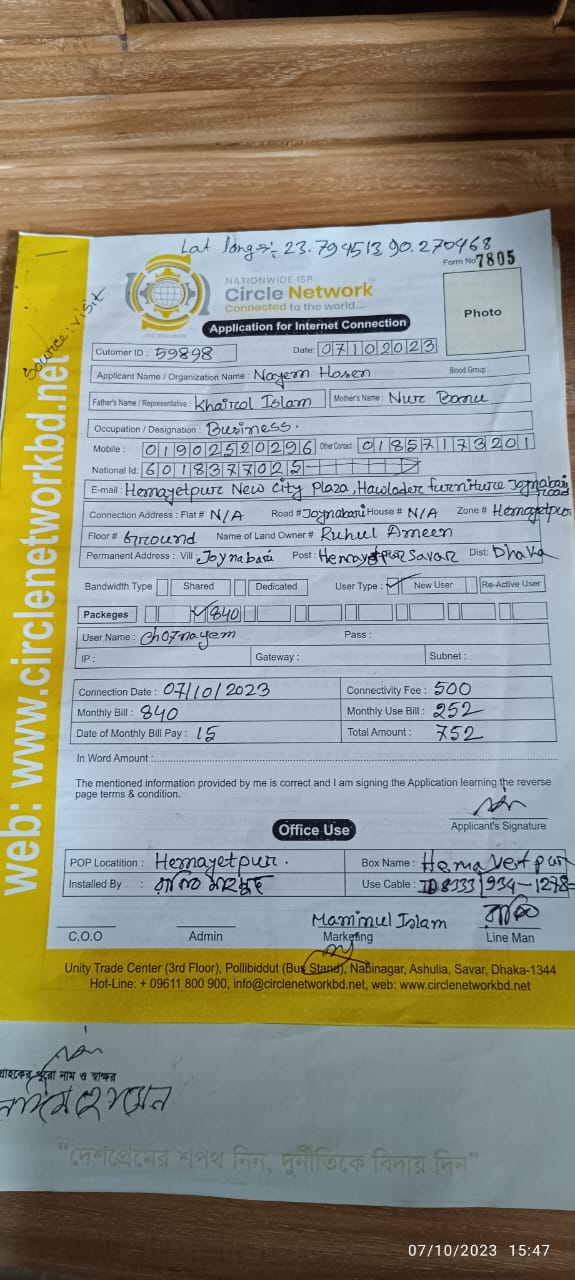 Lat long:- 23.794513,90.270468
Form No 7805
NATIONWIDE ISP
Circle Network
Connected to the world....
Source: visit
Photo
Application for Internet Connection
Cutomer ID : 59898 Date: 07102023
Applicant Name / Organization Name : Nayem Hosen Blood Group :
Father's Name / Representative : Khairol Islam Mother's Name : Nur Banu
Occupation / Designation : Business.
Mobile : 01902520296 Other Contact 01857173201
National Id: 6018377025
E-mail : Hemayetpur New City Plaza, Hawlader furniture Joynabari road
Connection Address : Flat # N/A Road # Joynabari House # N/A Zone # Hemayetpur
Floor # Ground Name of Land Owner # Ruhul Ameen
Permanent Address : Vill : Joynabari Post : Hemayetpur Savar Dist: Dhaka
Bandwidth Type Shared Dedicated User Type : New User Re-Active User
Packeges 840
User Name : cho7nayem Pass :
IP : Gateway : Subnet :
Connection Date : 07/10/2023 Connectivity Fee : 500
Monthly Bill : 840 Monthly Use Bill : 252
Date of Monthly Bill Pay : 15 Total Amount : 752
In Word Amount :
The mentioned information provided by me is correct and I am signing the Application learning the reverse
page terms & condition.
Applicant's Signature
Office Use
POP Locatition : Hemayetpur. Box Name : Hemayetpur
Installed By : Use Cable : ID 8333 934-1278=
Maminul Islam
C.O.O Admin Marketing Line Man
Unity Trade Center (3rd Floor), Pollibiddut (Bus Stand), Nabinagar, Ashulia, Savar, Dhaka-1344
Hot-Line: + 09611 800 900, info@circlenetworkbd.net, web: www.circlenetworkbd.net
web: www.circlenetworkbd.net
গ্রাহকের পুরো নাম ও স্বাক্ষর
"দেশপ্রেমের শপথ নিন, দুর্নীতিকে বিদায় দিন"
07/10/2023 15:47